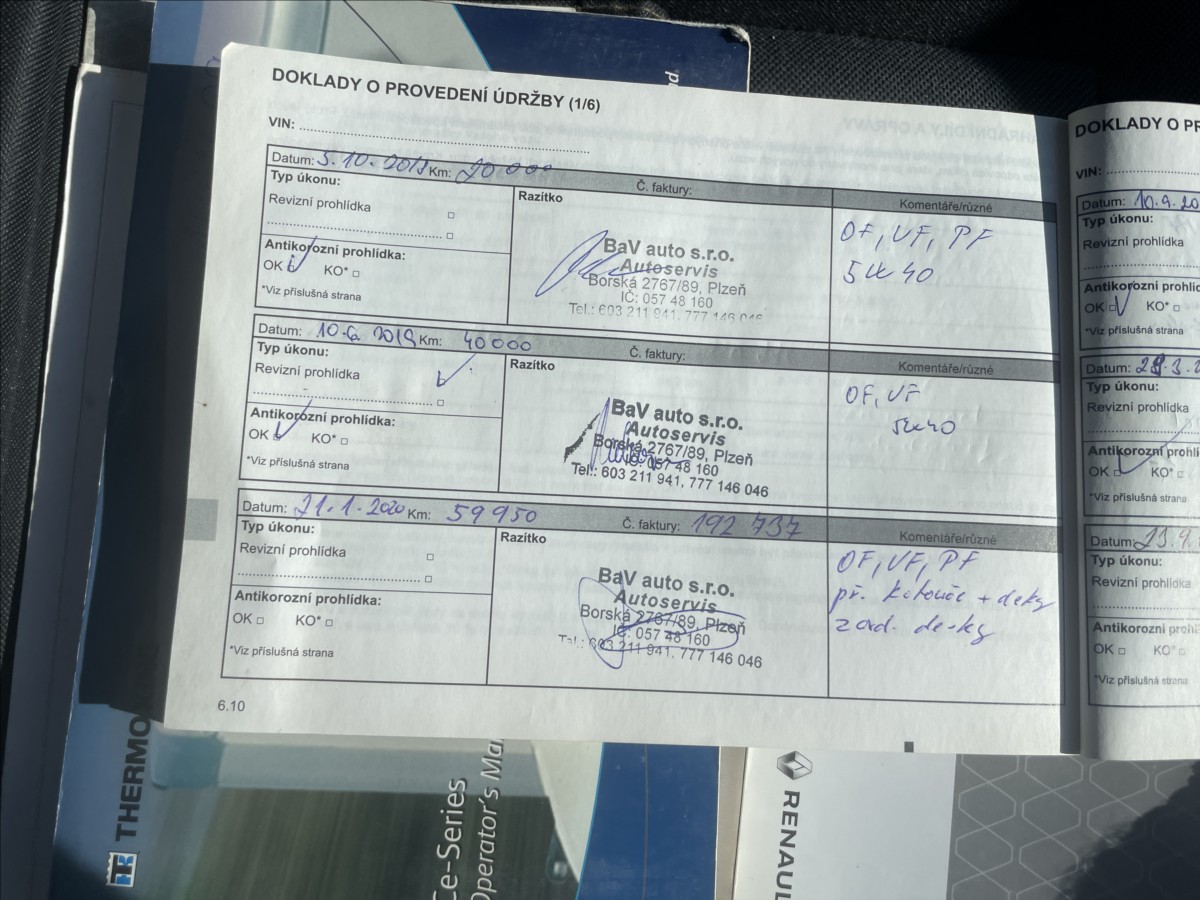 DOKLADY O PROVEDENÍ ÚDRŽBY (1/6)
VIN:
Datum: 5.10.2018 Km: 20 000 Č. faktury:
Typ úkonu:
Revizní prohlídka
Antikorozní prohlídka:
OK KO*
*Viz příslušná strana
Razítko
BaV auto s.r.o.
Autoservis
Borská 2767/89, Plzeň
IČ: 057 48 160
Tel.: 603 211 941, 777 146 046
Komentáře/různé
OF, VF, PF
5W40
Datum: 10.6 2019 Km: 40000 Č. faktury:
Typ úkonu:
Revizní prohlídka
Antikorozní prohlídka:
OK KO*
*Viz příslušná strana
Razítko
BaV auto s.r.o.
Autoservis
Borská 2767/89, Plzeň
IČ: 057 48 160
Tel.: 603 211 941, 777 146 046
Komentáře/různé
OF, VF
5W40
Datum: 21.1.2020 Km: 59950 Č. faktury: 192 737
Typ úkonu:
Revizní prohlídka
Antikorozní prohlídka:
OK KO*
*Viz příslušná strana
Razítko
BaV auto s.r.o.
Autoservis
Borská 2767/89, Plzeň
IČ: 057 48 160
Tel.: 603 211 941, 777 146 046
Komentáře/různé
OF, VF, PF
př. kotouče + desky
zad. desky
6.10
DOKLADY O PR
VIN:
Datum: 10.9.20
Typ úkonu:
Revizní prohlídka
Antikorozní prohlíd
OK KO*
*Viz příslušná strana
Datum:
Typ úkonu:
Revizní prohlídka
Antikorozní prohlí
OK KO*
*Viz příslušná strana
Datum:
Typ úkonu:
Revizní prohlídka
Antikorozní prohlí
OK KO*
*Viz příslušná strana
THERMO
Ce-Series
Operator's Ma
RENAUL